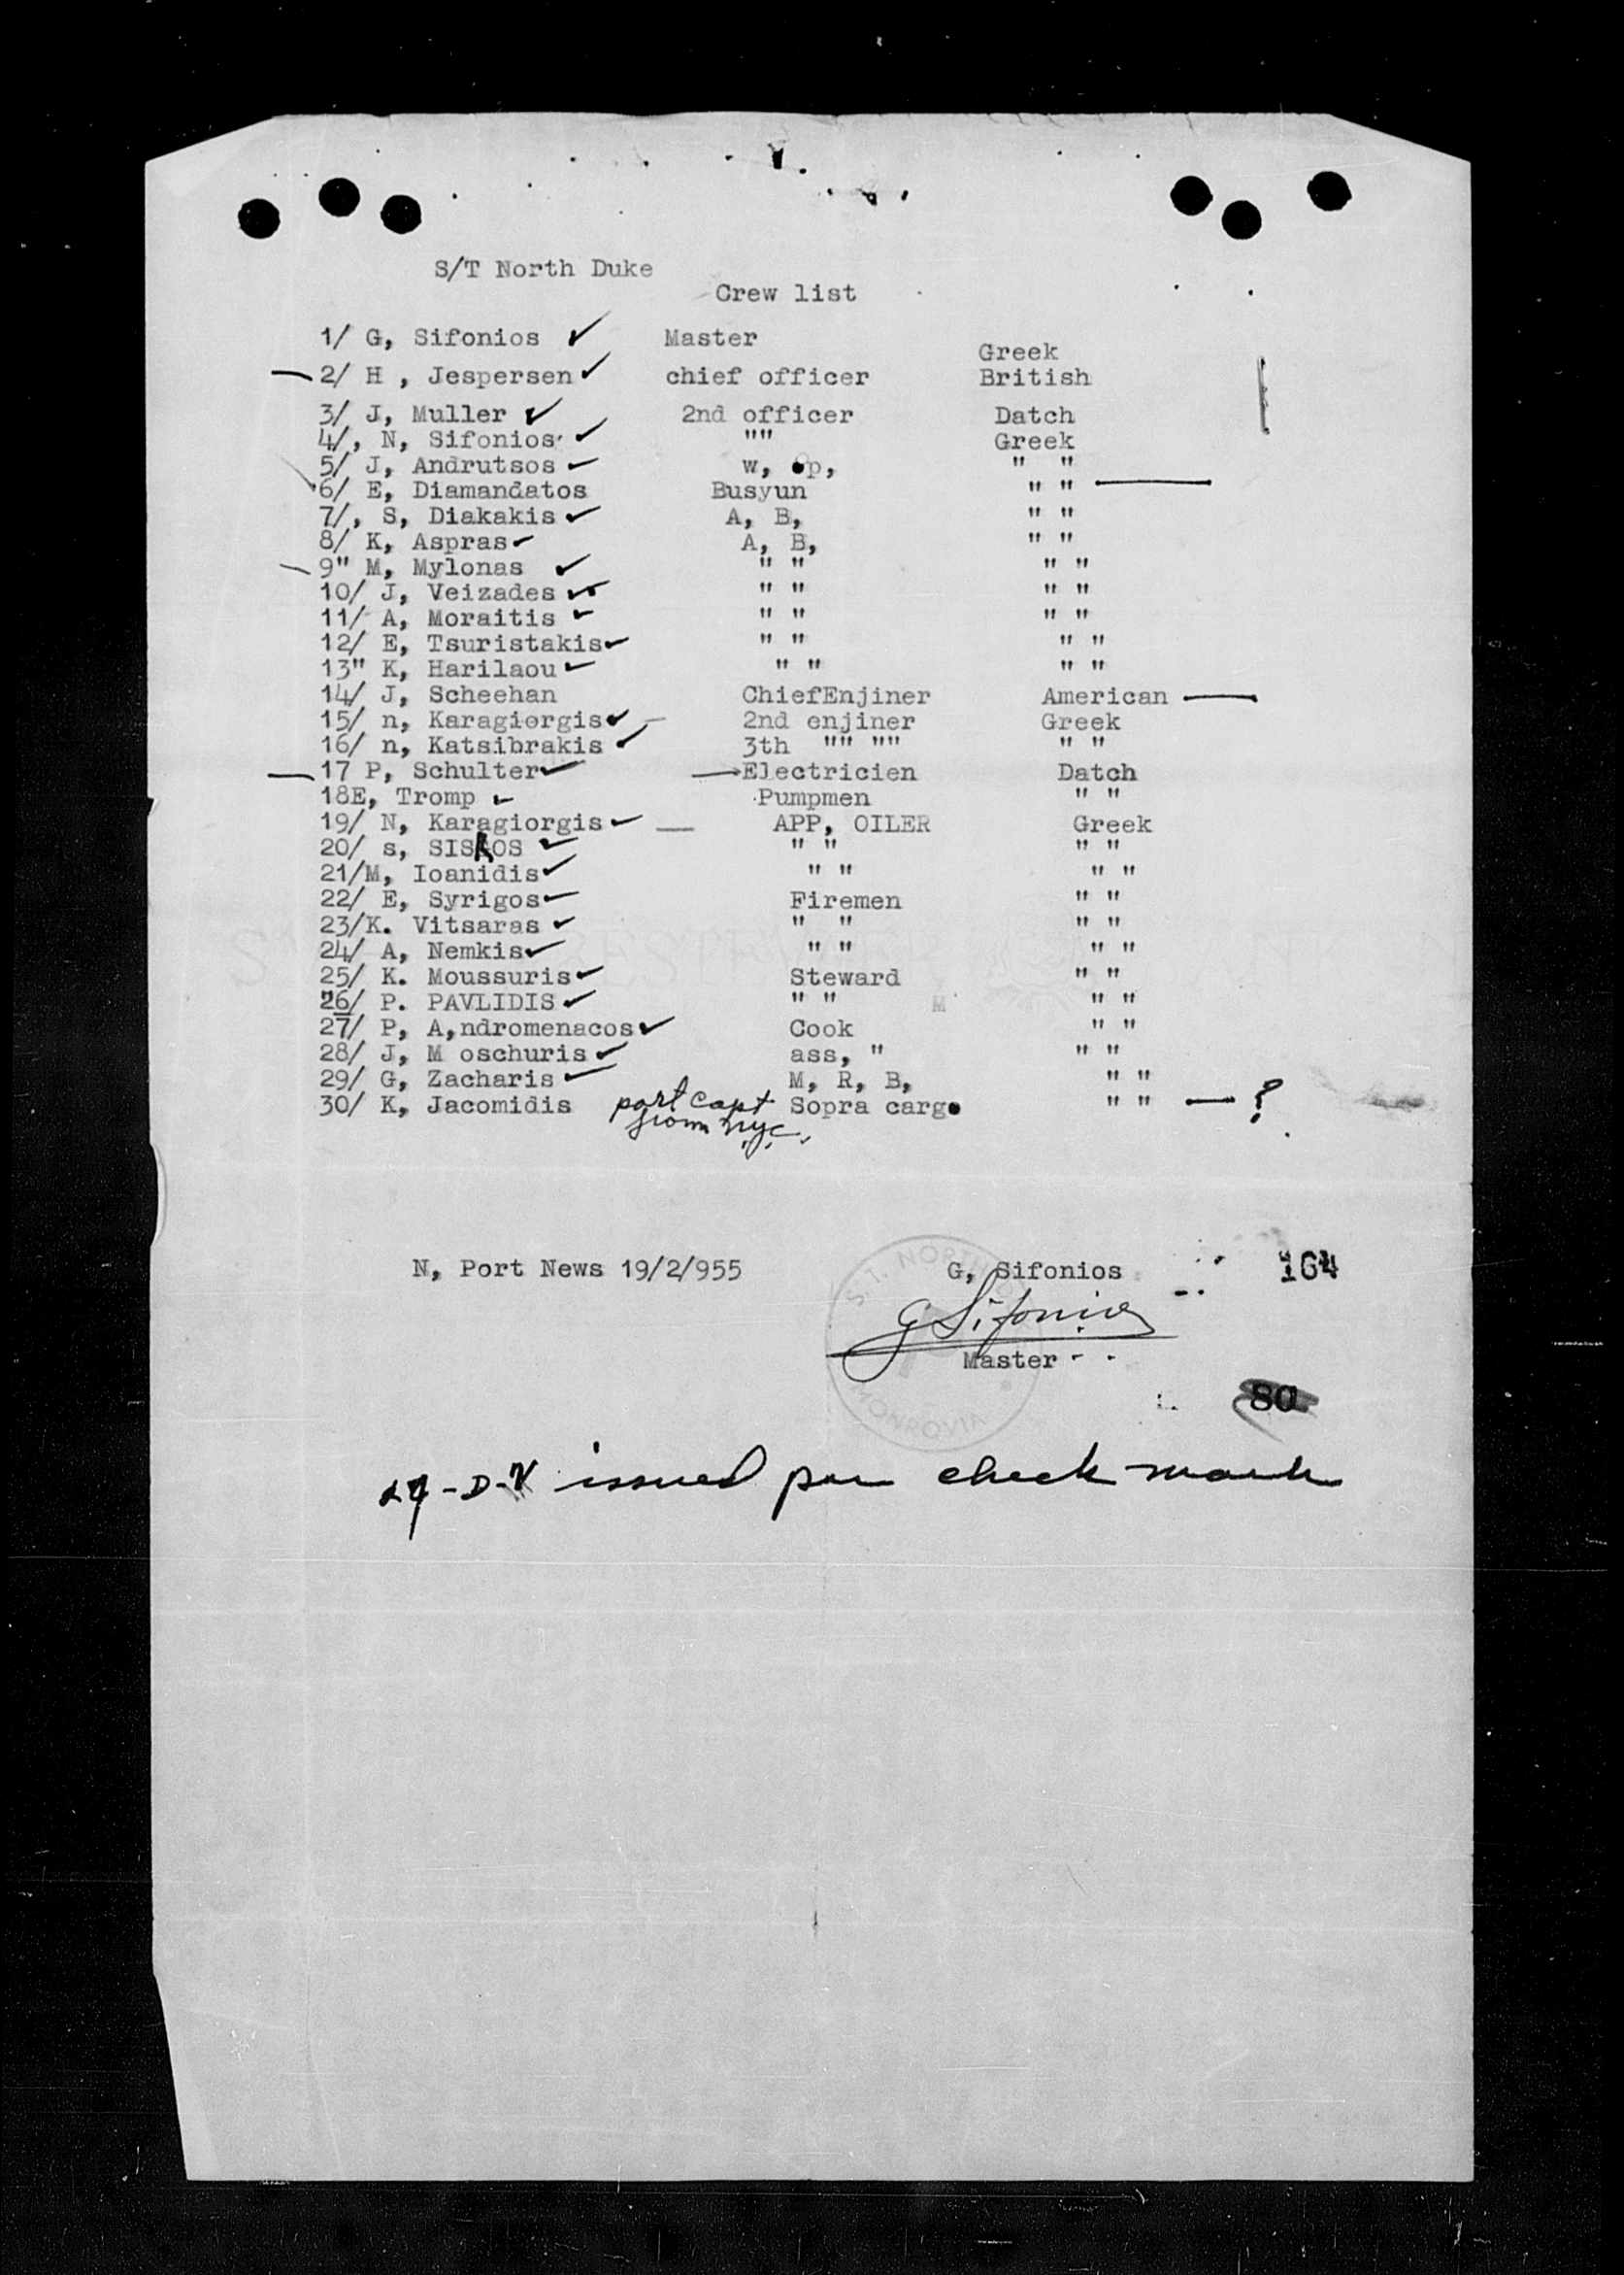 S/T North Duke
Crew list
1/ G, Sifonios ✓ Master Greek
2/ H , Jespersen ✓ chief officer British
3/ J, Muller ✓ 2nd officer Datch
4/, N, Sifonios ✓ "" Greek
5/ J, Andrutsos ✓ w, op, " "
6/ E, Diamandatos Busyun " "
7/, S, Diakakis ✓ A, B, " "
8/ K, Aspras ✓ A, B, " "
9" M, Mylonas ✓ " " " "
10/ J, Veizades ✓ " " " "
11/ A, Moraitis ✓ " " " "
12/ E, Tsuristakis ✓ " " " "
13" K, Harilaou ✓ " " " "
14/ J, Scheehan ChiefEnjiner American
15/ n, Karagiorgis ✓ 2nd enjiner Greek
16/ n, Katsibrakis ✓ 3th "" "" " "
17 P, Schulter ✓ Electricien Datch
18E, Tromp ✓ Pumpmen " "
19/ N, Karagiorgis ✓ APP, OILER Greek
20/ s, ✓ " " " "
21/M, Ioanidis ✓ " " " "
22/ E, Syrigos ✓ Firemen " "
23/K. Vitsaras ✓ " " " "
24/ A, Nemkis ✓ " " " "
25/ K. Moussuris ✓ Steward " "
26/ P. PAVLIDIS ✓ " " " "
27/ P, A,ndromenacos ✓ Cook " "
28/ J, M oschuris ✓ ass, " " "
29/ G, Zacharis ✓ M, R, B, " "
30/ K, Jacomidis port capt Sopra cargo " " — ?
from nyc
N, Port News 19/2/955 G, Sifonios 164
G Sifonios
Master
S.T. NORTH
MONROVIA
80
27-D-V issued per check mark